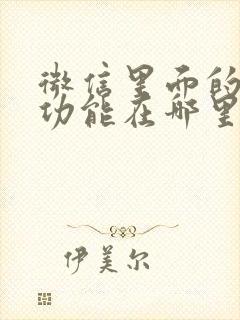 微信里面的
功能在哪里
伊美尔